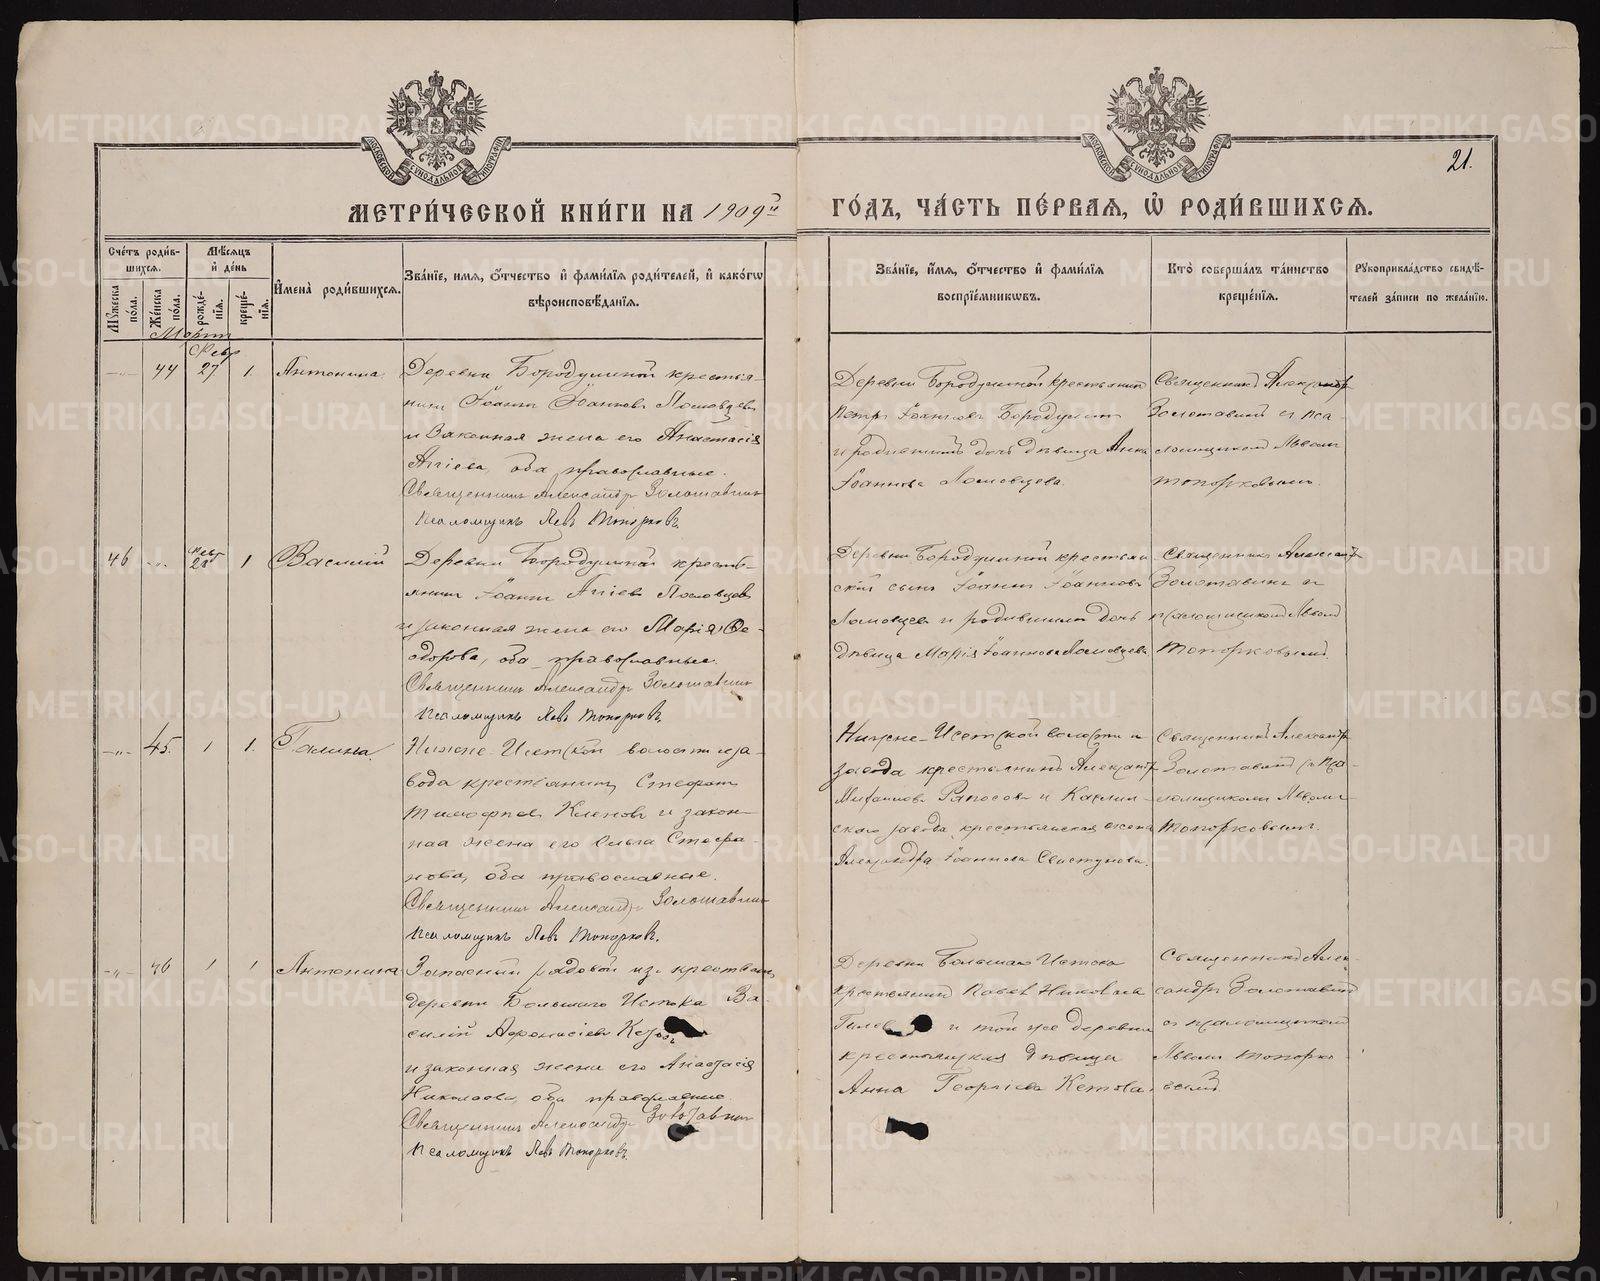 МОСКОВСКОЙ СѴНОДАЛЬНОЙ ТИПОГРАФІИ
МОСКОВСКОЙ СѴНОДАЛЬНОЙ ТИПОГРАФІИ
21.
МЕТРИ́ЧЕСКОЙ КНИ́ГИ НА 1909й
ГО́ДЪ, ЧА́СТЬ ПЕ́РВАЯ, Ѡ РОДИ́ВШИХСЯ.
Сче́тъ роди́в-
шихся.
Мѣ́сяцъ
и̂ де́нь
Му́жеска по́ла.
Же́нска по́ла.
рожде́-
нїя.
креще́-
нїя.
И̂мена̀ роди́вшихся.
Зва́нїе, имя, ѻ́тчество и̂ фами́лїя роди́телей, и̂ како́гѡ
вѣроисповѣ́данїя.
Зва́нїе, и́мя, ѻ́тчество и̂ фами́лїя
воспрїе́мникѡвъ.
Кто̀ соверша́лъ та́инство
креще́нїя.
Рꙋкоприкла́дство свидѣ́-
телей за́писи по жела́нїю.
Мартъ
-„- 44 Февр 27 1. Антонина.
Деревни Бородулиной крестья-
нинъ Іоаннъ Іоанновъ Ломовцевъ
и законная жена его Анастасія
Аггіева, оба православные.
Священникъ Александръ Золотавинъ
Псаломщикъ Левъ Топорковъ.
Деревни Бородулиной крестьянинъ
Петръ Іоанновъ Бородулинъ
и родившихъ дочь дѣвица Анна
Іоаннова Ломовцева.
Священникъ Александръ
Золотавинъ съ пса-
ломщикомъ Львомъ
Топорковымъ.
46 -„- Февр 28 1 Василій
Деревни Бородулиной кресть-
янинъ Іоаннъ Аггіевъ Ломовцевъ
и законная жена его Марія Ѳе-
одорова, оба православные.
Священникъ Александръ Золотавинъ
Псаломщикъ Левъ Топорковъ.
Деревни Бородулиной крестьян
скій сынъ Іоаннъ Іоанновъ
Ломовцевъ и родившихъ дочь
дѣвица Марія Іоаннова Ломовцева
Священникъ Александръ
Золотавинъ съ
псаломщикомъ Львомъ
Топорковымъ.
-„- 45. 1 1. Галина.
Нижне-Исетской волости и за-
вода крестьянинъ Стефанъ
Тимофеевъ Кленовъ и закон-
ная жена его Ольга Стефа-
нова, оба православные.
Священникъ Александръ Золотавинъ
Псаломщикъ Левъ Топорковъ.
Нижне-Исетской волости и
завода крестьянинъ Александръ
Михаиловъ и Каслин-
скаго завода крестьянская жена
Александра Іоаннова Свистунова.
Священникъ Александръ
Золотавинъ съ пса-
ломщикомъ Львомъ
Топорковымъ.
-„- 46 1 1 Антонина
Запасный рядовой изъ крестьянъ
деревни Большого Истока Ва
силій Афонасіевъ
и законная жена его Анастасія
Николаева, оба православные.
Священникъ Александръ Золотавинъ
Псаломщикъ Левъ Топорковъ.
Деревни Большаго Истока
крестьянинъ Павелъ Николаевъ
и той же деревни
крестьянская дѣвица
Анна Георгіева Кетова.
Священникъ Алек-
сандръ Золотавинъ
съ псаломщикомъ
Львомъ Топорко-
вымъ.
METRIKI.GASO-URAL.RU